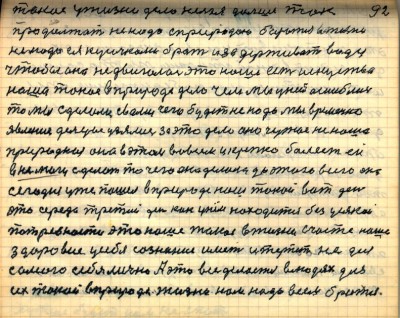 такое у жизни дело нельзя дальше так 92
продолжать не надо с природою бороться а жизни
не надо ея кусочками брать и задерживать воду
чтобы она не двигалась это наше есть искуства
наша такое в природе дело чем мы у ней ошиблись
то мы сделали сами чего будет не надо мы временно
явление делаем взялися за это дело оно чужое не наше
природная она в этом во всем и крепко болеет ей
в немоги сделат то чего она делала до этого всего она
сегодня уже пошел в природе наш такой вот ден
это среда третий ден как у нем находится без всякой
потребности это наше такое в жизни счасте наше
здоровие у себя сознание имет и терпит не для
самого себя лично А это все делается в людях для
их такой в природе жизни нам надо всем братся